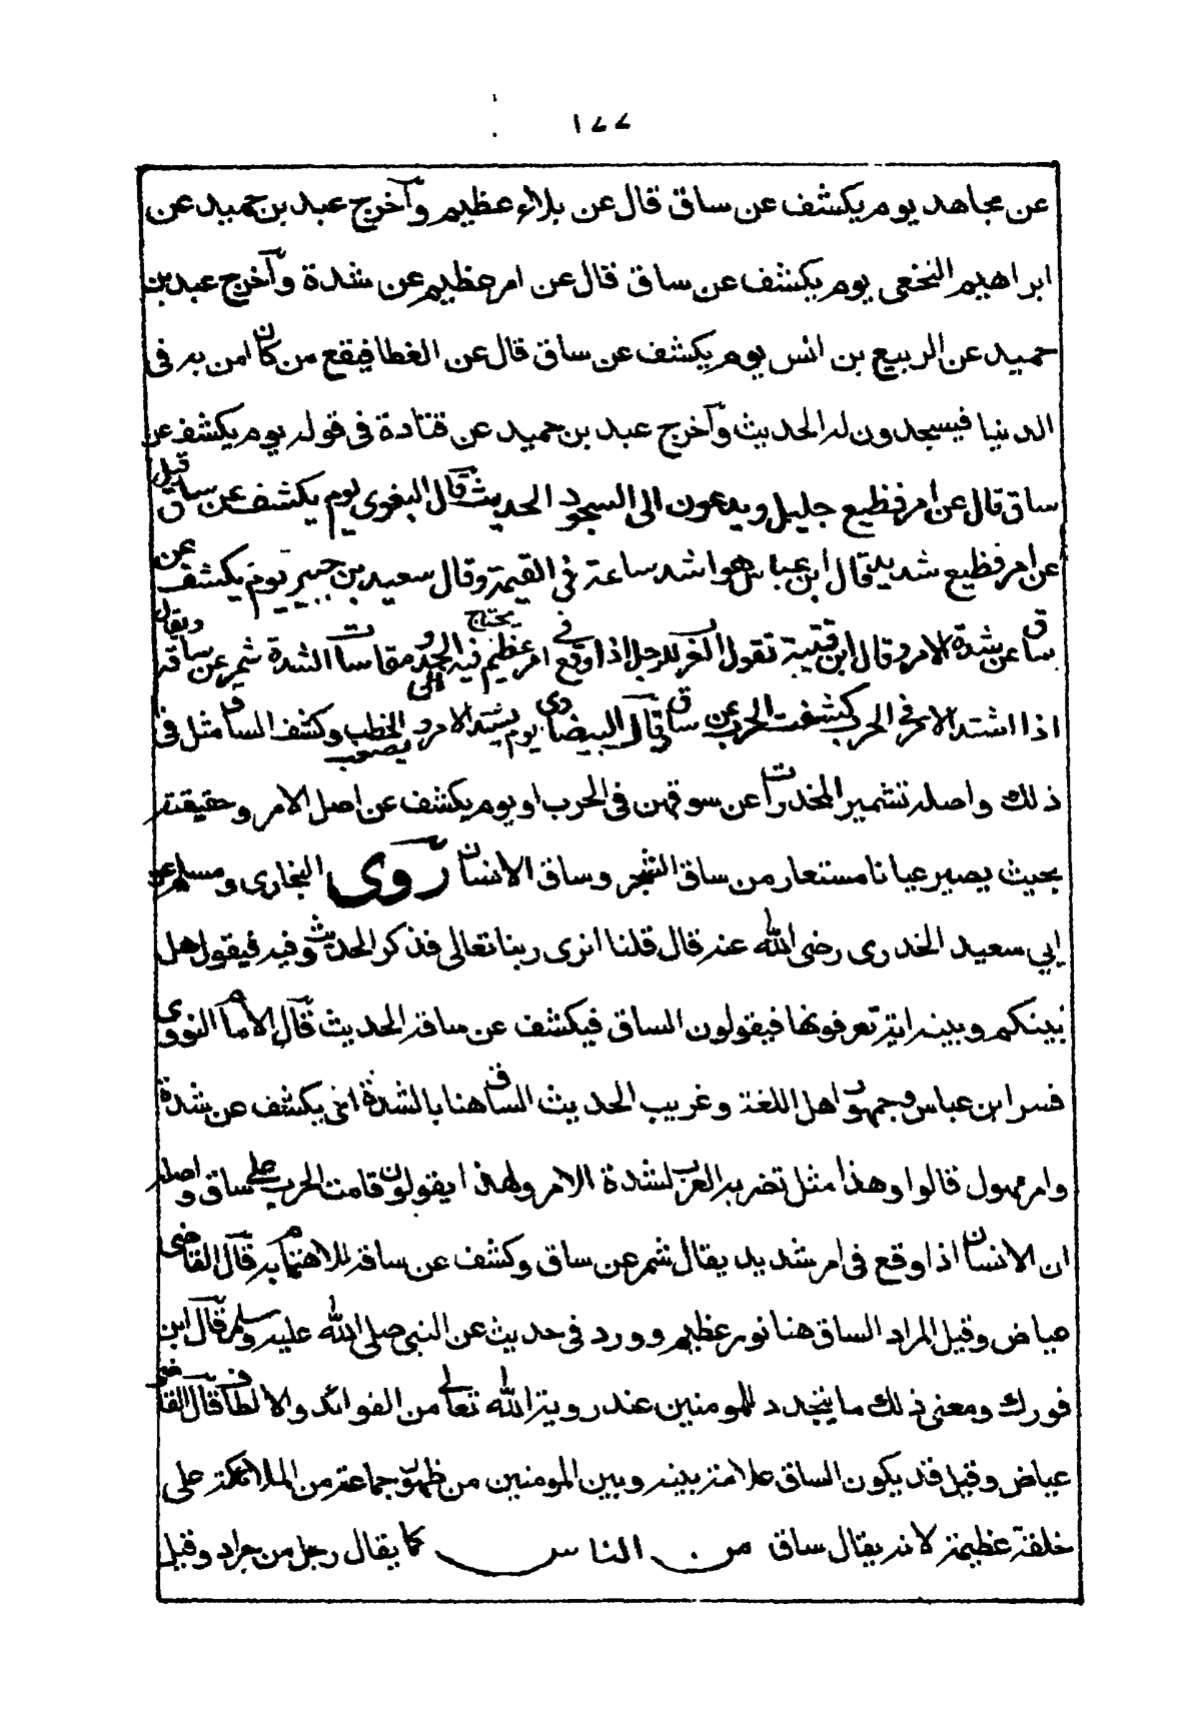 ١٧٧
عن مجاهد يوم يكشف عن ساق قال عن بلاء عظيم وآخرج عبد بن حميد عن
ابراهيم النخعى يوم يكشف عن ساق قال عن امر عظيم عن شدة وآخرج عبد بن
حميد عن الربيع بن انس يوم يكشف عن ساق قال عن الغطا فيقع من كان امن به فى
الدنيا فيسجدون له الحديث وآخرج عبد بن حميد عن قتادة فى قوله يوم يكشف عن
ساق قال عن امر فظيع جليل ويدعون الى السجود الحديث قال البغوى يوم يكشف عن ساق قيل
عن امر فظيع شديد قال ابن عباس هو اشد ساعة فى القيمة وقال سعيد بن جبير يوم يكشف عن
ساق عن شدة الامر وقال ابن قتيبة تقول العرب للرجل اذا وقع فى امر عظيم يحتاج فيه الى الجد ومقاسات الشدة شمر عن ساقه ويقال
اذا اشتد الامر فى الحرب كشفت الحرب عن ساق قال البيضاوى يوم يشتد الامر ويصعب الخطب وكشف الساق مثل فى
ذلك واصله تشمير المخدرات عن سوقهن فى الحرب او يوم يكشف عن اصل الامر وحقيقته
بحيث يصير عيانا مستعار من ساق الشجر وساق الانسان روى البخارى ومسلم عن
ابي سعيد الخدرى رضى الله عنه قال قلنا انرى ربنا تعالى فذكر الحديث وفيه فيقول هل
بينكم وبينه اية تعرفونها فيقولون الساق فيكشف عن ساقه الحديث قال الامام النووى
فسر ابن عباس وجمهور اهل اللغة وغريب الحديث الساق هنا بالشدة اى يكشف عن شدة
وامر مهول قالوا وهذا مثل تضربه العرب لشدة الامر ولهذا يقولون قامت الحرب على ساق واصله
ان الانسان اذا وقع فى امر شديد يقال شمر عن ساق وكشف عن ساقه للاهتمام به قال القاضى
عياض وقيل المراد الساق هنا نور عظيم وورد فى حديث عن النبى صلى الله عليه وسلم قال ابن
فورك ومعنى ذلك ما يتجدد للمومنين عند روية الله تعالى من الفوائد والالطاف قال القاضى
عياض وقيل قد يكون الساق علامة بينه وبين المومنين من ظهور جماعة من الملائكة على
خلقة عظيمة لانه يقال ساق من الناس كما يقال رجل من جراد وقيل